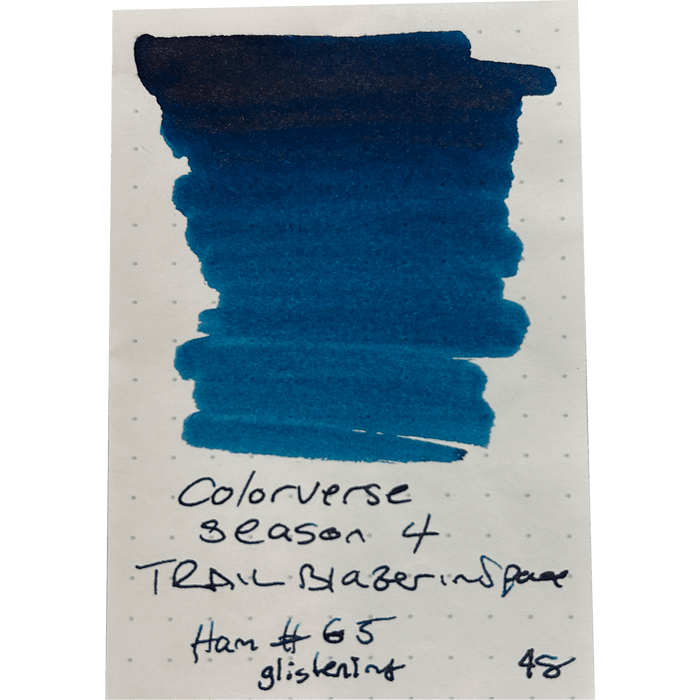 Colorverse
season 4
TRAIL Blazer in Space
Ham # 65
glistening
48